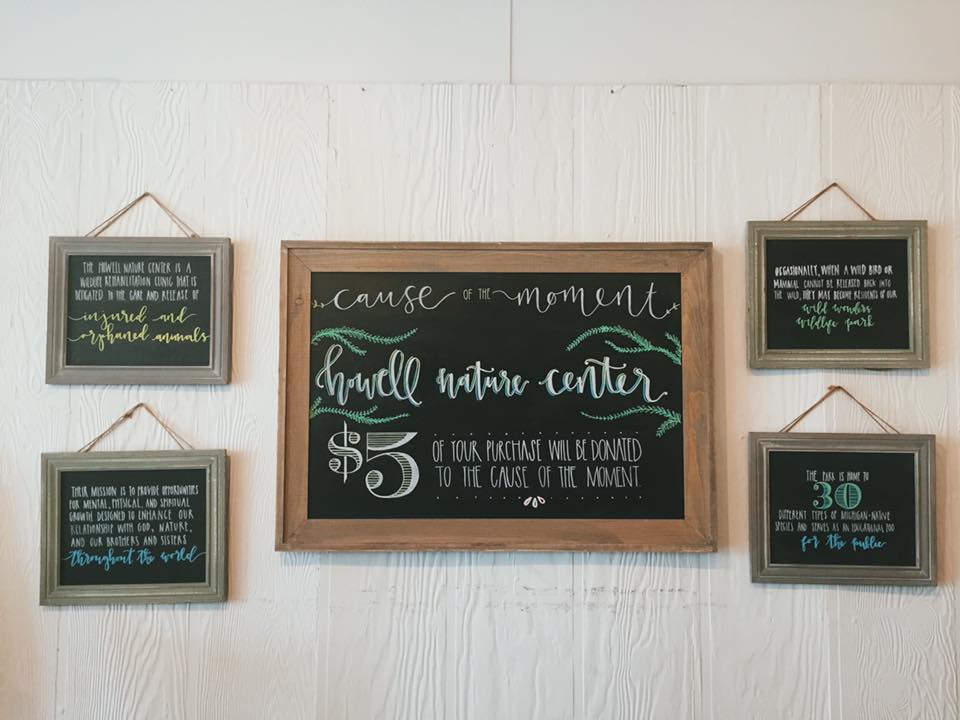 THE HOWELL NATURE CENTER IS A
WILDLIFE REHABILITATION CLINIC THAT IS
DEDICATED TO THE CARE AND RELEASE OF
injured and
orphaned animals
THEIR MISSION IS TO PROVIDE OPPORTUNITIES
FOR MENTAL, PHYSICAL, AND SPIRITUAL
GROWTH DESIGNED TO ENHANCE OUR
RELATIONSHIP WITH GOD, NATURE,
AND OUR BROTHERS AND SISTERS
throughout the world
cause OF THE moment
howell nature center
$5 OF YOUR PURCHASE WILL BE DONATED
TO THE CAUSE OF THE MOMENT.
OCCASIONALLY, WHEN A WILD BIRD OR
MAMMAL CANNOT BE RELEASED BACK INTO
THE WILD, THEY MAY BECOME RESIDENTS OF OUR
wild wonders
wildlife park
THE PARK IS HOME TO
30
DIFFERENT TYPES OF MICHIGAN-NATIVE
SPECIES AND SERVES AS AN EDUCATIONAL ZOO
for the public